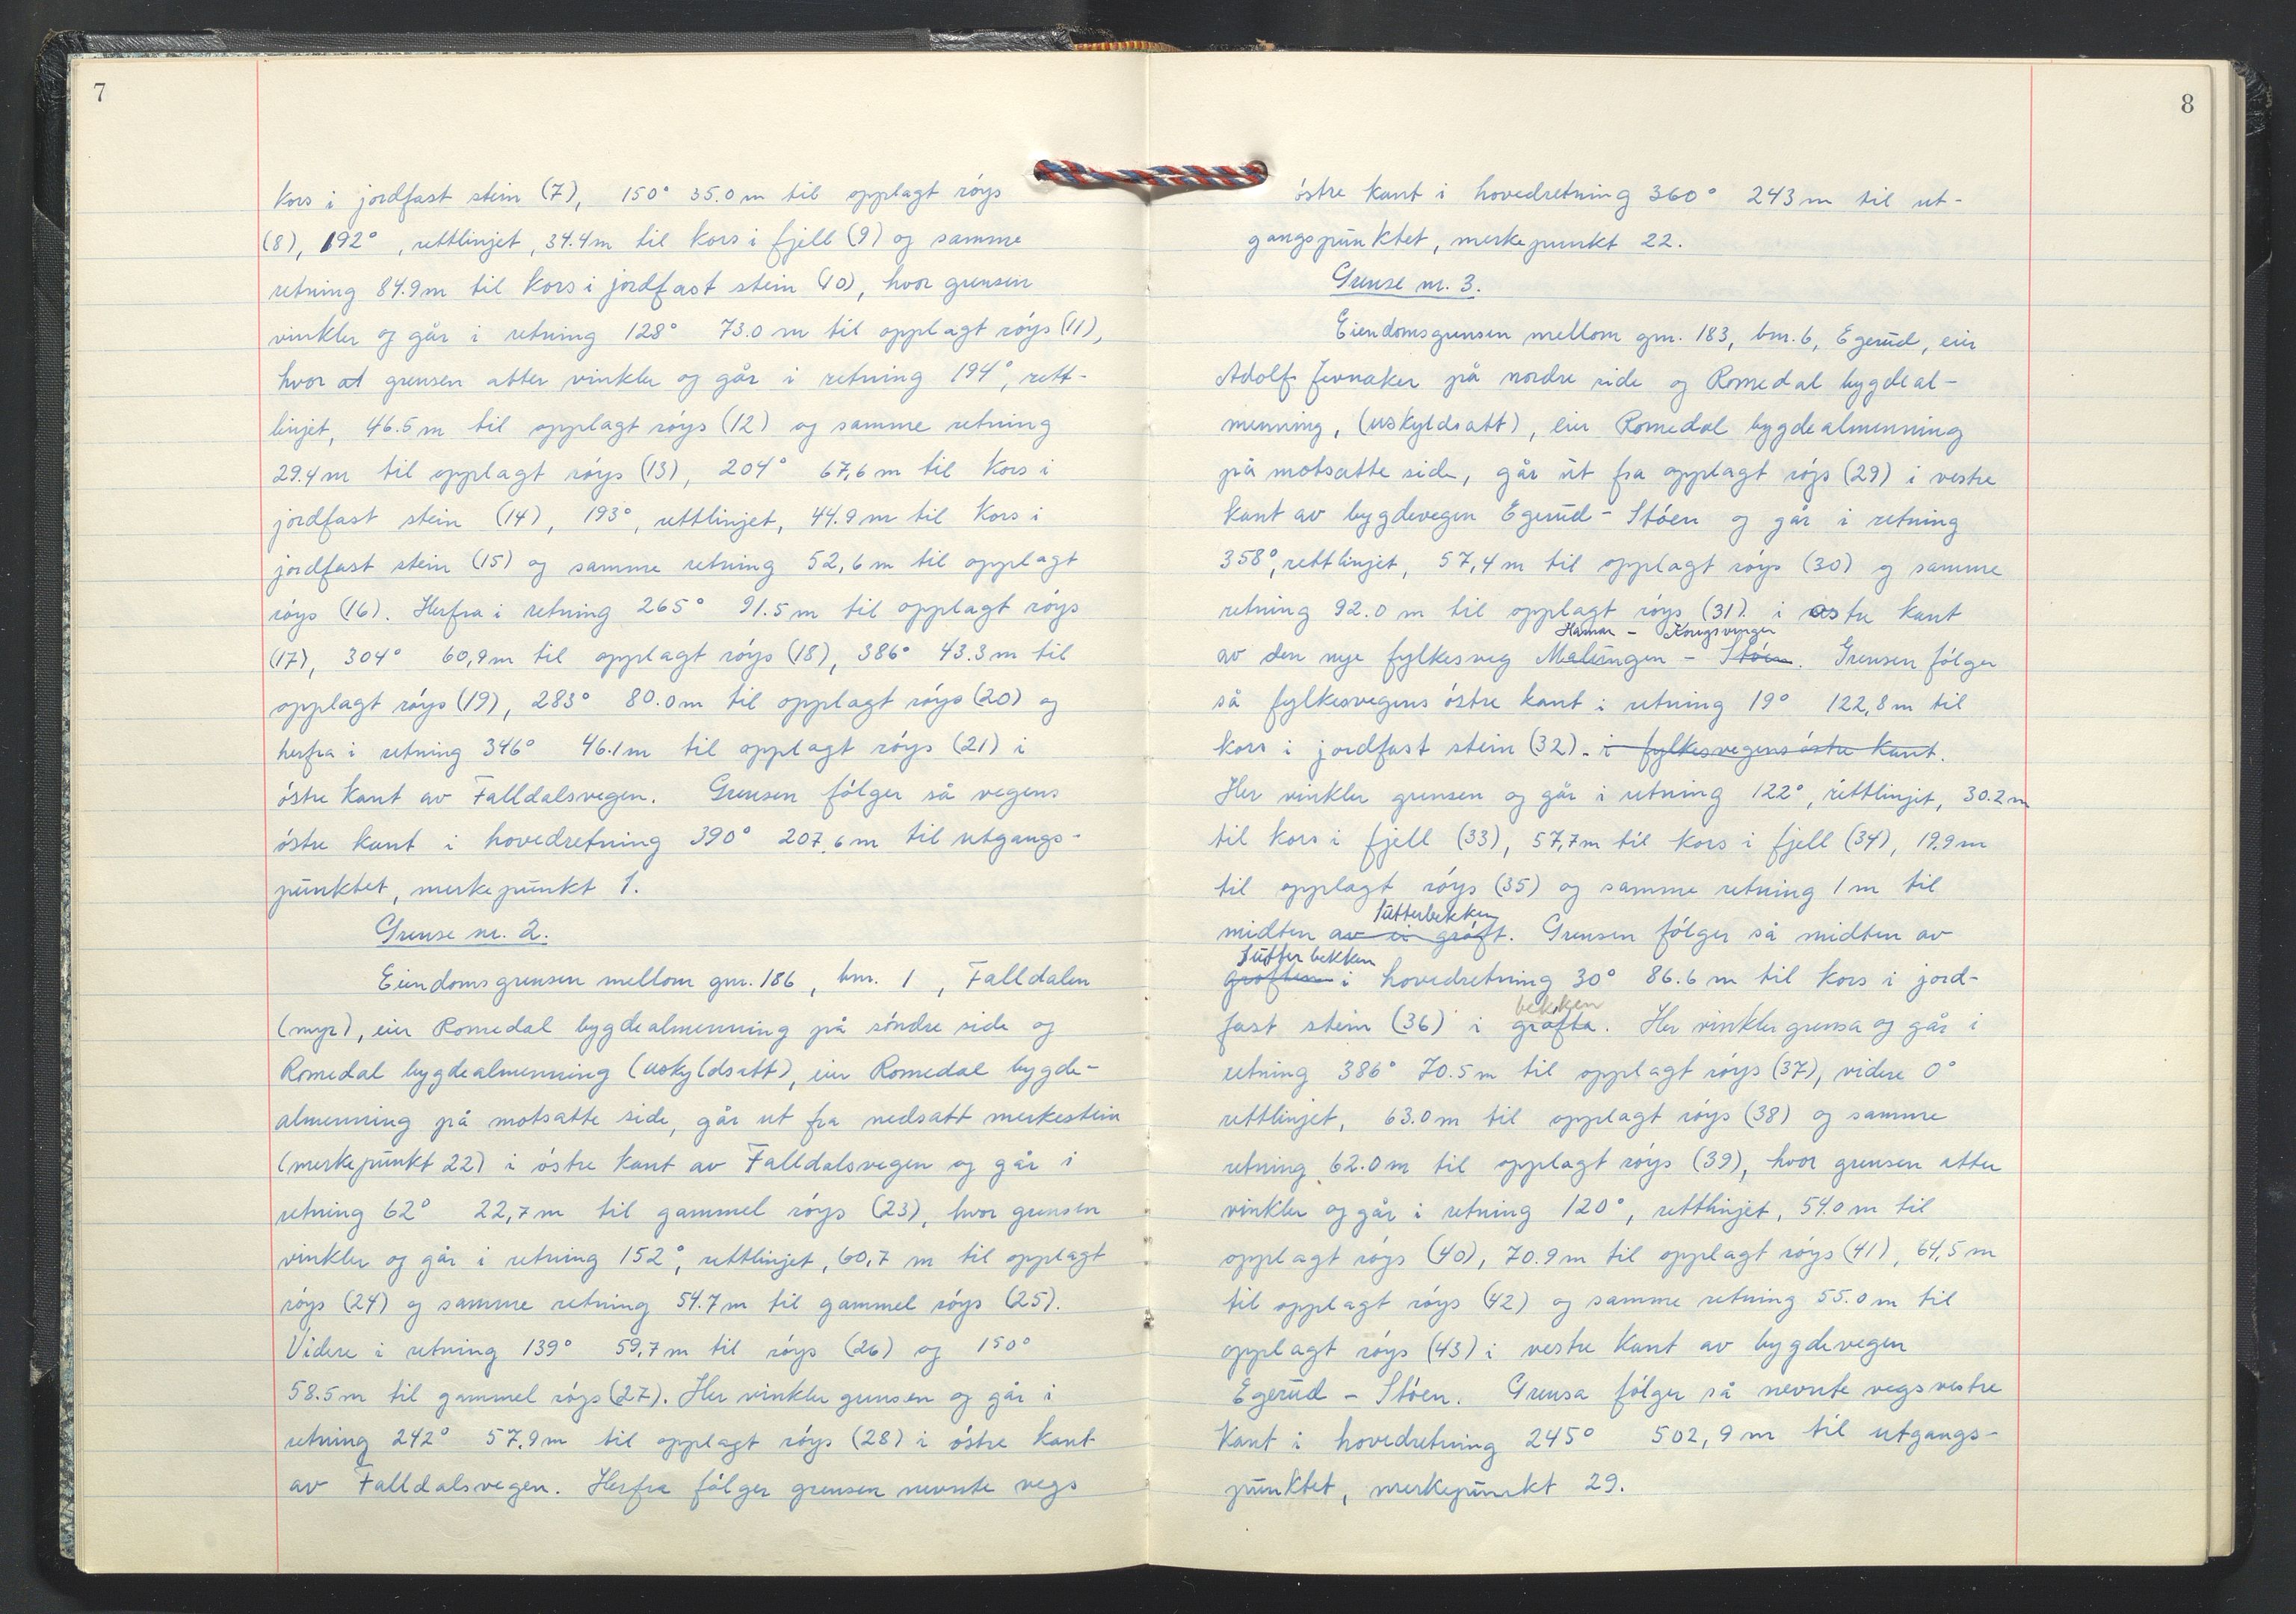 7
Kors i jordfast stein (7), 150° 35.0 m til opplagt röys
(8), 192°, rettlinjet, 34.4m til Kors i fjell (9) og samme
retning 84.9m til Kors i jordfast stein (10), hvor grensen
vinkler og går i retning 128° 73.0 m til opplagt röys (11),
hvor at grensen atter vinkler og går i retning 194°, rett-
linjet, 46.5 m til opplagt röys (12) og samme retning
29.4 m til opplagt röys (13), 204° 67,6 m til Kors i
jordfast stein (14), 193°, rettlinjet, 44.9 m til Kors i
jordfast stein (15) og samme retning 52,6 m til opplagt
röys (16). Herfra i retning 265° 91.5 m til opplagt röys
(17), 304° 60,9m til opplagt röys (18), 386° 43.3 m til
opplagt röys (19), 283° 80.0m til opplagt röys (20) og
herfra i retning 346° 46.1m til opplagt röys (21) i
östre Kant av Falldalsvegen. Grensen fölger så vegens
östre kant i hovedretning 390° 207,6 m til utgangs-
punktet, merkepunkt 1.
Grense nr. 2.
Eiendomsgrensen mellom gnr. 186, bnr. 1, Falldalen
(myr), eier Romedal bygdealmenning på söndre side og
Romedal bygdealmenning (uskyldsatt), eier Romedal bygde-
almenning på motsatte side, går ut fra nedsatt merkestein
(merkepunkt 22) i östre Kant av Falldalsvegen og går i
retning 62° 22,7 m til gammel röys (23), hvor grensen
vinkler og går i retning 152°, rettlinjet, 60,7 m til opplagt
röys (24) og samme retning 54.7 m til gammel röys (25).
Videre i retning 139° 59,7 m til röys (26) og 150°
58.5 m til gammel röys (27). Her vinkler grensen og går i
retning 242° 57.9 m til opplagt röys (28) i östre kant
av Falldalsvegen. Herfra fölger grensen nevnte vegs
8
östre Kant i hovedretning 360° 243 m til ut-
gangspunktet, merkepunkt 22.
Grense nr. 3.
Eiendomsgrensen mellom gnr. 183, bnr. 6, Egerud, eier
Adolf Jevnaker på nordre side og Romedal bygdeal-
menning, (uskyldsatt), eier Romedal bygdealmenning
på motsatte side, går ut fra opplagt röys (29) i vestre
kant av bygdevegen Egerud - Stöen og går i retning
358°, rettlinjet, 57,4 m til opplagt röys (30) og samme
retning 92.0 m til opplagt röys (31). i östre Kant
Hamar - Kongsvinger
av den nye fylkesveg Malungen - Stöen. Grensen fölger
så fylkesvegens östre kant i retning 19° 122,8 m til
Kors i jordfast stein (32). i fylkesvegens östre Kant.
Her vinkler grensen og går i retning 122°, rettlinjet, 30.2 m
til kors i fjell (33), 57,7m til kors i fjell (34), 19.9 m
til opplagt röys (35) og samme retning 1 m til
Sutterbekken
midten av ei gröft. Grensen fölger så midten av
Sutterbekken
gröften i hovedretning 30° 86.6 m til kors i jord-
bekken
fast stein (36) i gröfta. Her vinkler grensa og går i
retning 386° 70.5 m til opplagt röys (37), videre 0°
rettlinjet, 63.0 m til opplagt röys (38) og samme
retning 62.0 m til opplagt röys (39), hvor grensen atter
vinkler og går i retning 120°, rettlinjet, 54.0 m til
opplagt röys (40), 70.9 m til opplagt röys (41), 64,5 m
til opplagt röys (42) og samme retning 55.0 m til
opplagt röys (43) i vestre Kant av bygdevegen
Egerud - Stöen. Grensa fölger så nevnte vegs vestre
Kant i hovedretning 245° 502,9 m til utgangs-
punktet, merkepunkt 29.